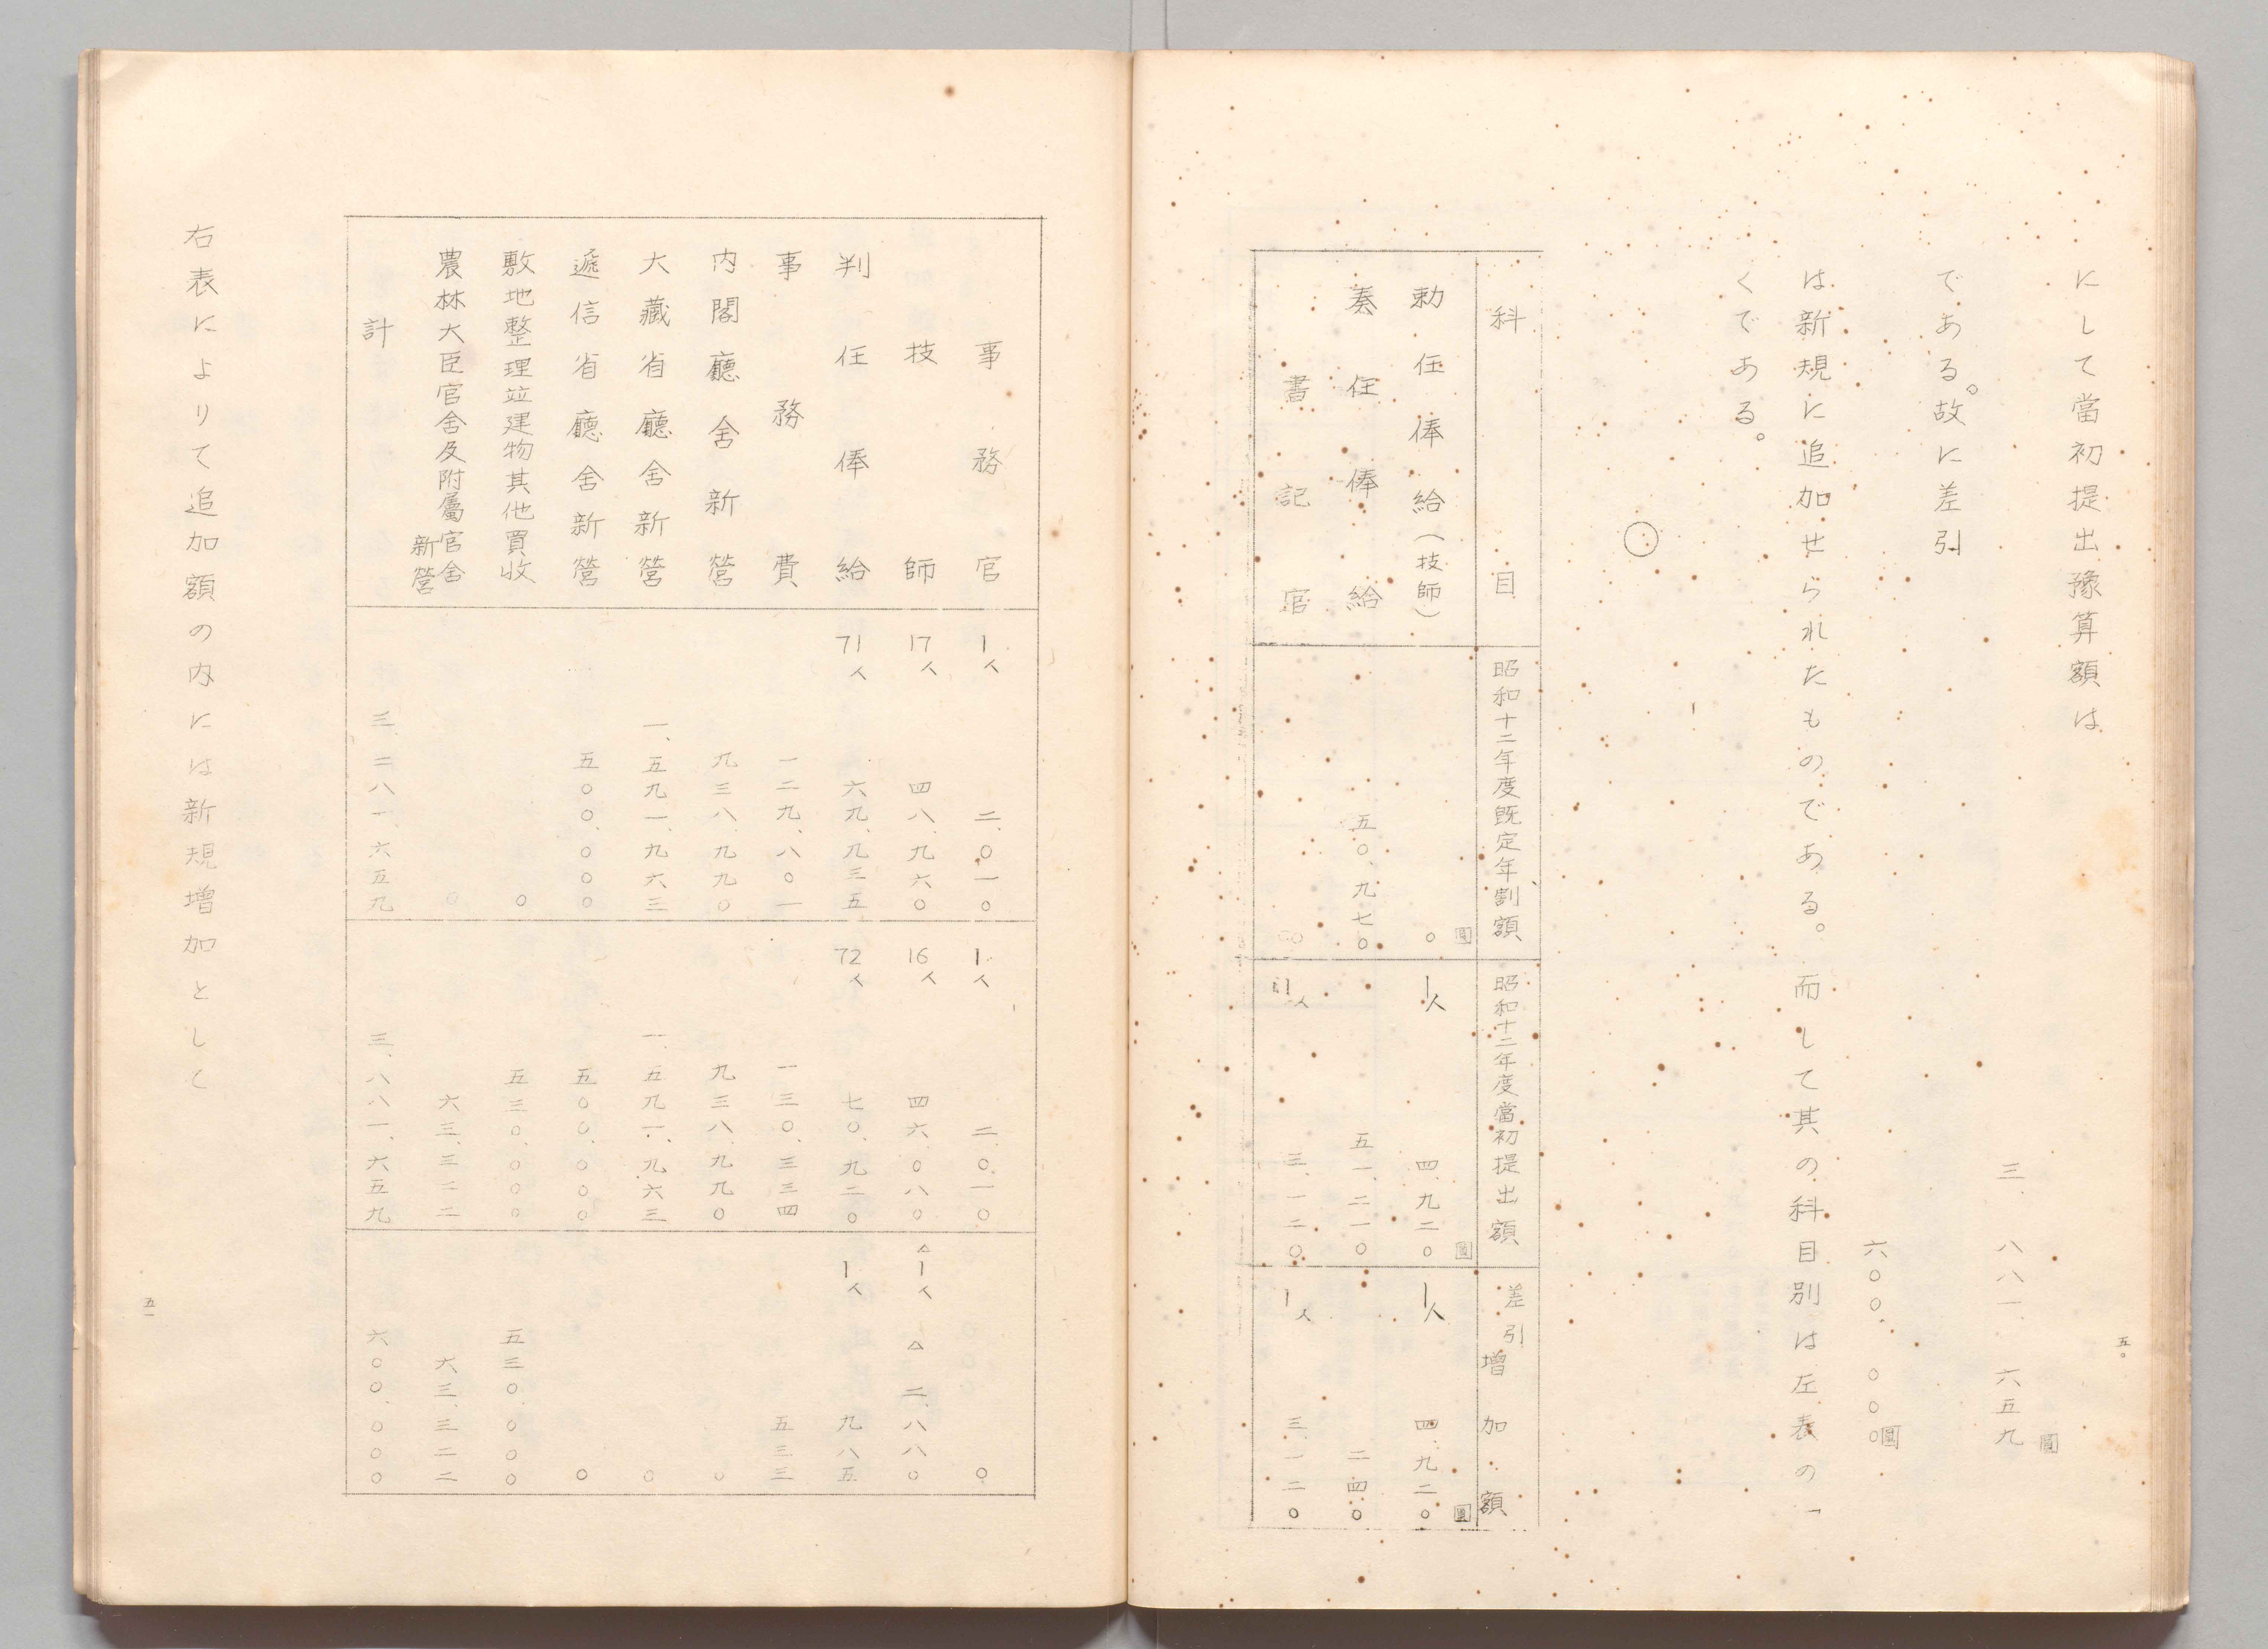 にして當初提出豫算額は
三、八八一、六五九圓
である。故に差引
六〇〇、〇〇〇圓
は新規に追加せられたものである。而して其の科目別は左表の一
くである。
科目
昭和十二年度既定年割額
昭和十二年度當初提出額
差引増加額
勅任俸給(技師)
〇圓
1人
四、九二〇圓
1人
四、九二〇圓
奏任俸給
五〇、九七〇
五一、二一〇
二四〇
書記官
〇
1人
三、一二〇
1人
三、一二〇
五〇
事務官
1人
二、〇一〇
1人
二、〇一〇
〇
技師
17人
四八、九六〇
16人
四六、〇八〇
△1人
△二、八八〇
判任俸給
71人
六九、九三五
72人
七〇、九二〇
1人
九八五
事務費
一二九、八〇一
一三〇、三三四
五三三
内閣廳舍新營
九三八、九九〇
九三八、九九〇
〇
大藏省廳舍新營
一、五九一、九六三
一、五九一、九六三
〇
遞信省廳舍新營
五〇〇、〇〇〇
五〇〇、〇〇〇
〇
敷地整理竝建物其他買收
〇
五三〇、〇〇〇
五三〇、〇〇〇
農林大臣官舍及附屬官舍
新營
〇
六三、三二二
六三、三二二
計
三、二八一、六五九
三、八八一、六五九
六〇〇、〇〇〇
右表によりて追加額の内には新規増加としく
五一